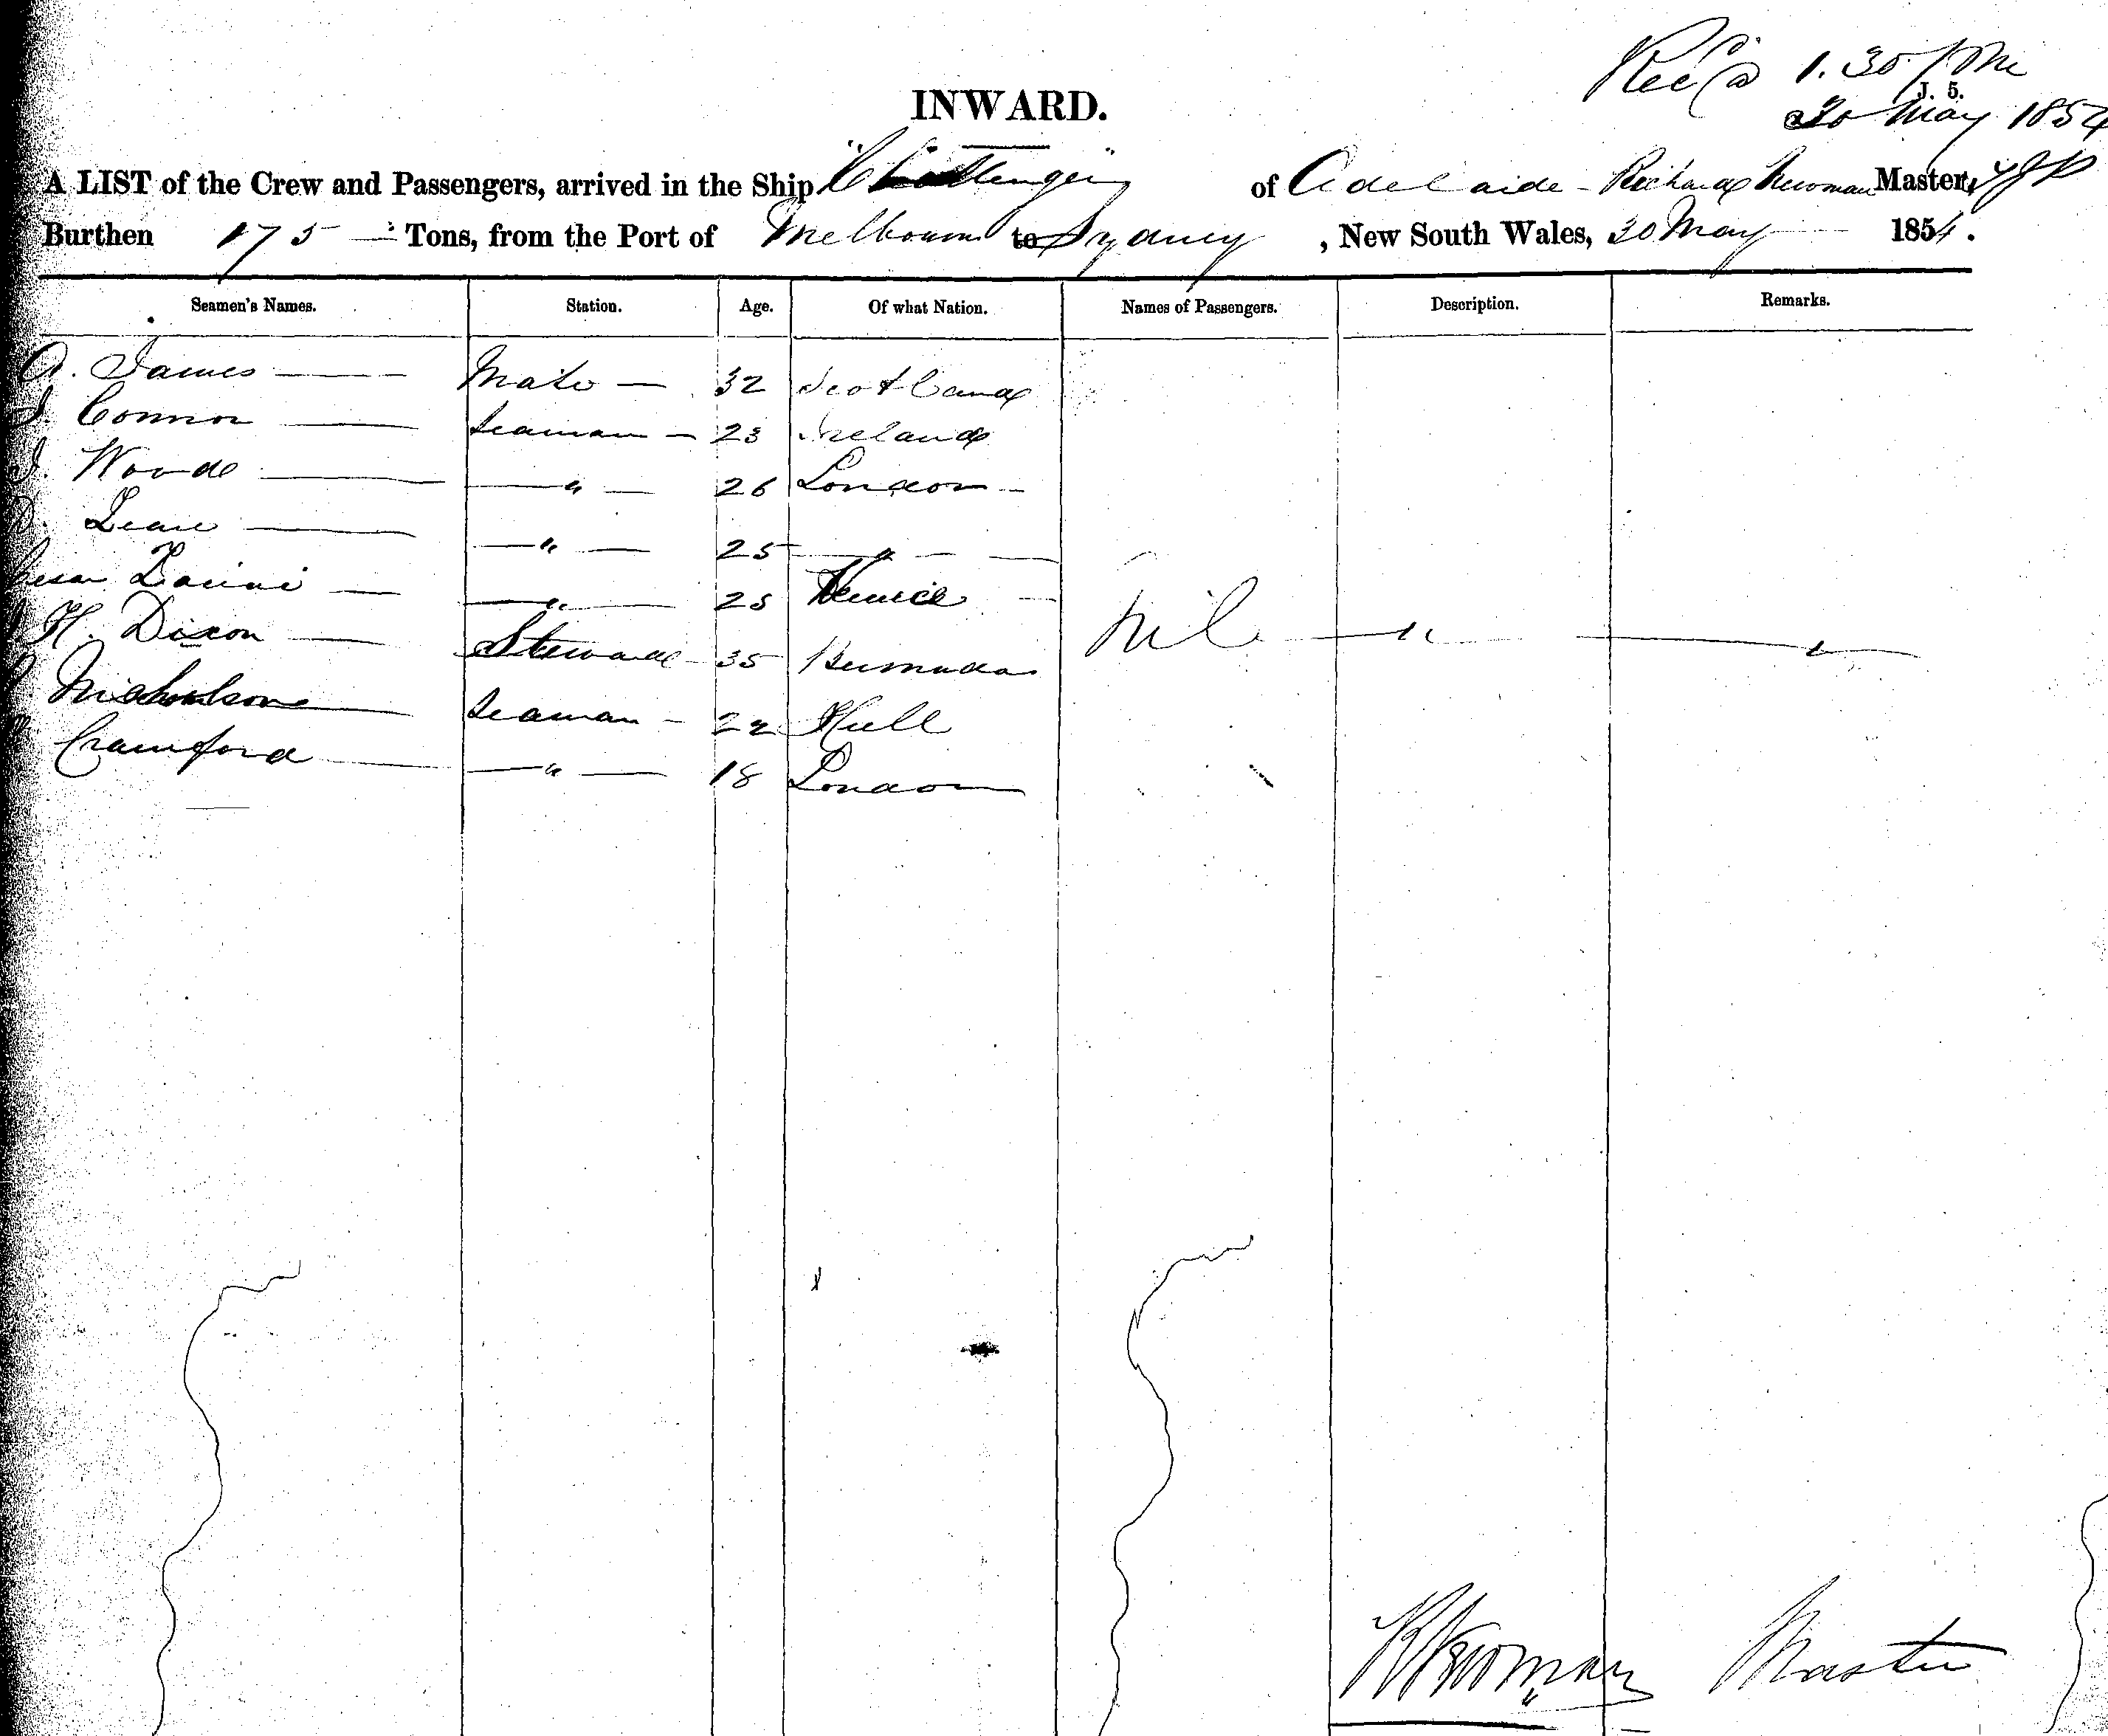 Rec'd 1.30 PM
J. 5.
30 May 1854
INWARD.
A LIST of the Crew and Passengers, arrived in the Ship "Challenger" of Adelaide - Richard Newman Master,
Burthen 175 Tons, from the Port of Melbourne to Sydney, New South Wales, 30 May 1854.
Seamen's Names. Station. Age. Of what Nation. Names of Passengers. Description. Remarks.
A. James Mate 32 Scotland
J. Connor Seaman 23 Ireland
J. Woode " 26 London
Leane " 25 "
Zarini " 25 Venice
H. Dixon Steward 35 Bermuda
Nil " "
Nicholson Seaman 22 Hull
Crawford " 18 London
R Newman Master